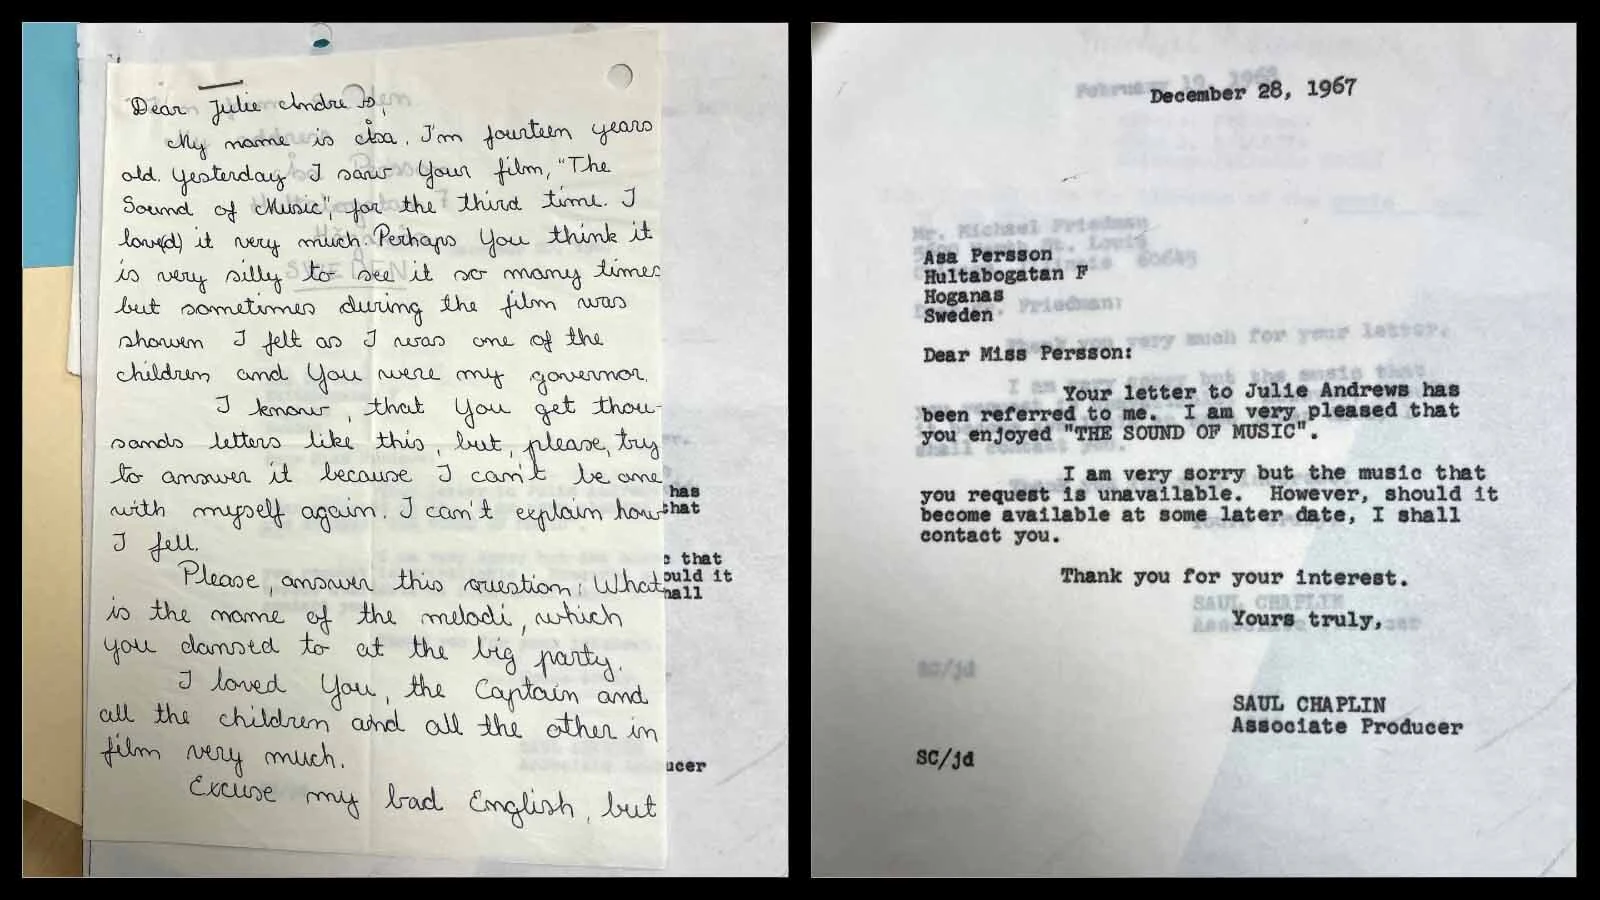 Dear Julie Andrews,
My name is Åsa. I'm fourteen years
old. Yesterday I saw Your film, "The
Sound of Music", for the third time. I
lov(d) it very much. Perhaps You think it
is very silly to see it so many times
but sometimes during the film was
showen I felt as I was one of the
children and You were my governor.
I know, that You get thou-
sands letters like this, but, please, try
to answer it because I can't be one
with myself again. I can't explain how
I fell.
Please, answer this question: What
is the name of the melodi, which
you dansed to at the big party.
I loved You, the Captain and
all the children and all the other in
film very much.
Excuse my bad English, but
has
that
c that
ould it
hall
ucer
February 19, 1968
December 28, 1967
Mr. Michael Friedman
Asa Persson
Hultabogatan F
Hoganas
Sweden
Dear Miss Persson:
Your letter to Julie Andrews has
been referred to me. I am very pleased that
you enjoyed "THE SOUND OF MUSIC".
I am very sorry but the music that
you request is unavailable. However, should it
become available at some later date, I shall
contact you.
Thank you for your interest.
Yours truly,
SAUL CHAPLIN
Associate Producer
SC/jd